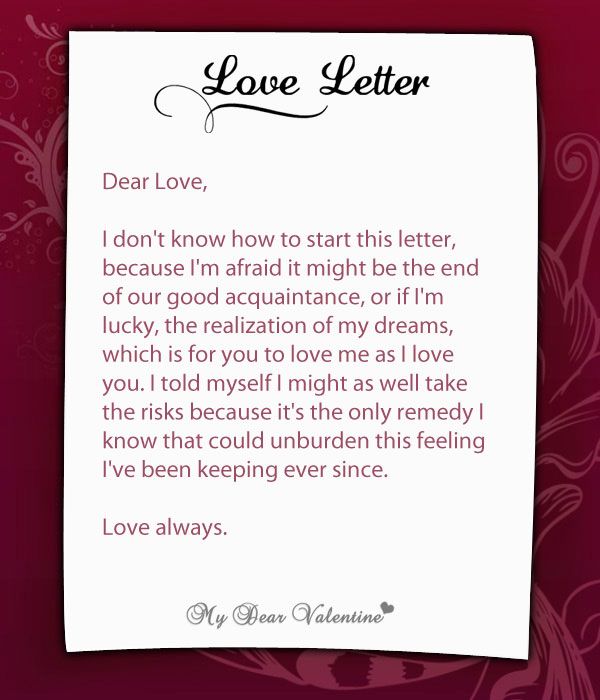 Love Letter
Dear Love,
I don't know how to start this letter,
because I'm afraid it might be the end
of our good acquaintance, or if I'm
lucky, the realization of my dreams,
which is for you to love me as I love
you. I told myself I might as well take
the risks because it's the only remedy I
know that could unburden this feeling
I've been keeping ever since.
Love always.
My Dear Valentine